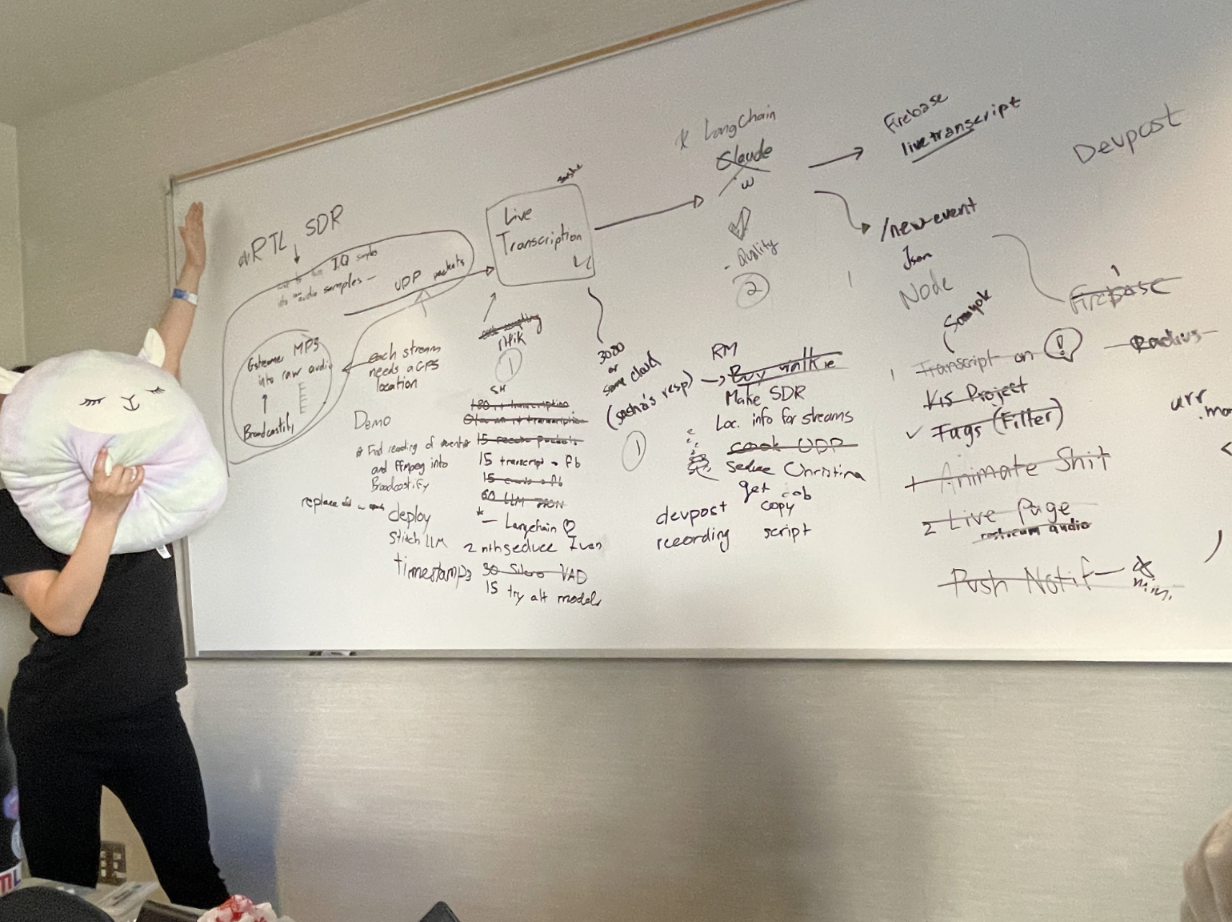 RTL SDR
IQ samples
to audio samples –
UDP packets
Gstreamer MP3
into raw audio
Broadcastify
each stream
needs a GPS
location
Live
Transcription
1
3000
or
same cloud
(sacha's resp)
1
* LangChain
Claude
- Quality
2
Firebase
livetranscript
Devpost
/new-event
Json
Node
Firebase
1
Demo
* Find recording of
and ffmpeg into
Broadcastify
replace
deploy
Stitch LLM
timestamps
15 transcript → fb
60 LLM JSON
* – Langchain
2 nthseduce Ivan
30 Silero VAD
15 try alt models
RM
→ Buy walkie
Make SDR
Loc. info for streams
cook UDP
Seduce Christina
get job
copy
devpost
recording script
1 Transcript on ! – Radius
K15 Project
✓ Tags (Filter)
1 Animate Shit
2 Live Page
audio
Push Notif –